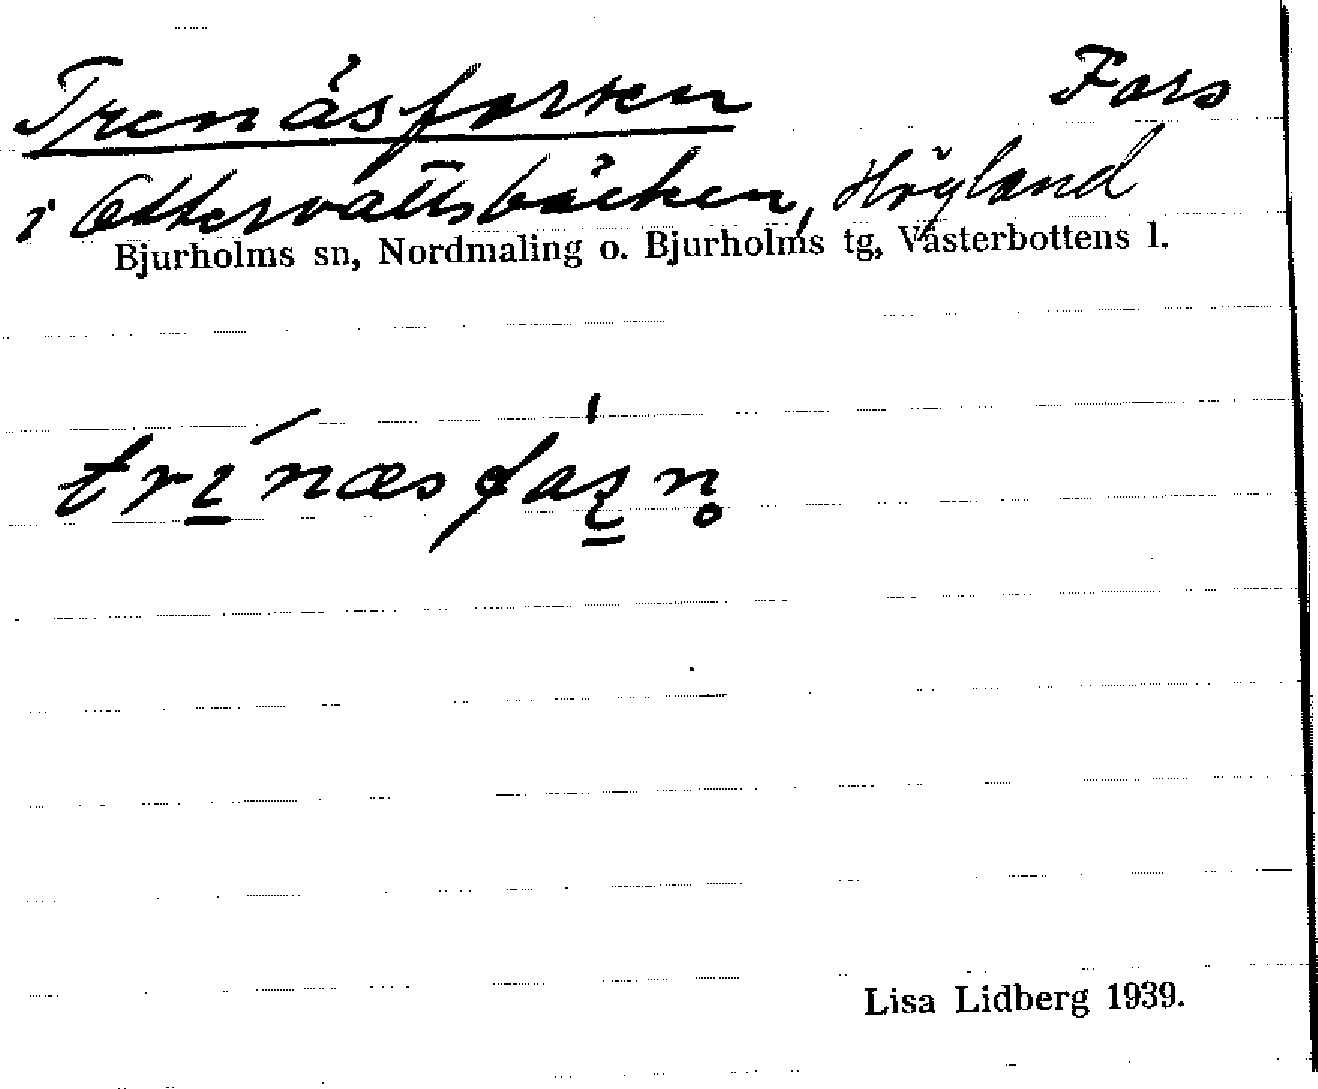 Trenäsforsen Fors
i Ottervattsbäcken, Högland
Bjurholms sn, Nordmaling o. Bjurholms tg, Västerbottens l.
Lisa Lidberg 1939.